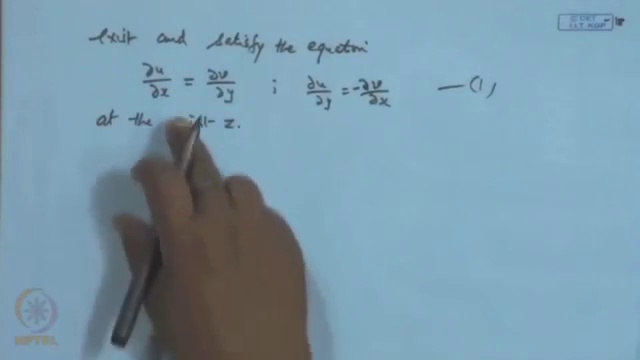 © CET
I.I.T. KGP
exist and satisfy the equation
∂u/∂x = ∂v/∂y ; ∂u/∂y = -∂v/∂x —(1)
at the z.
NPTEL